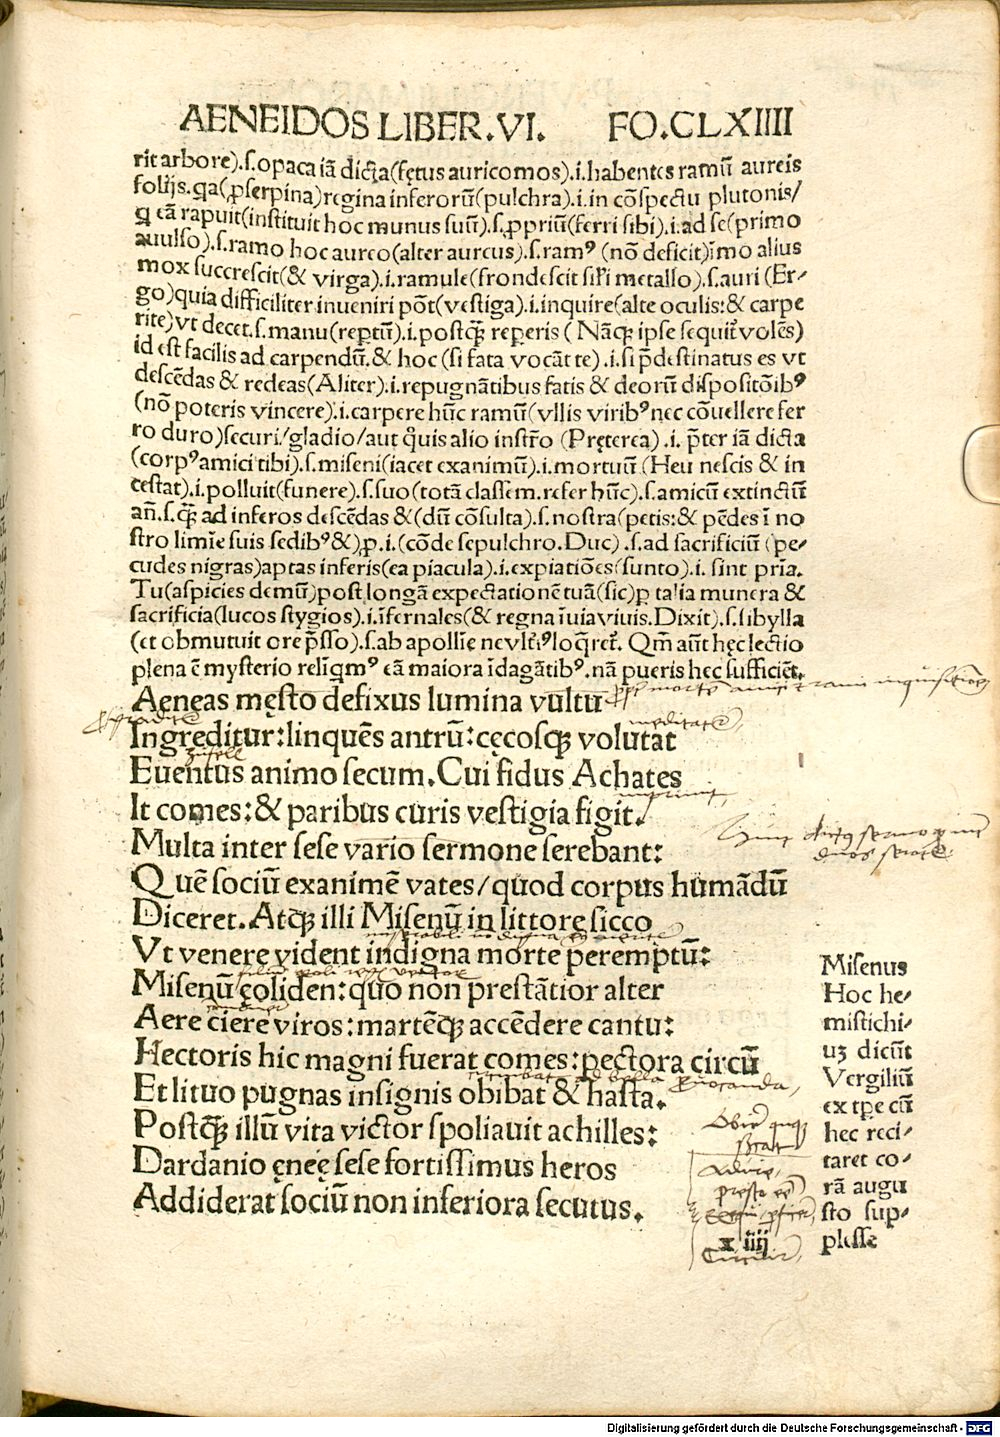 AENEIDOS LIBER.VI. FO.CLXIIII
rit arbore).ſ.opaca iã dicta(fętus auricomos).i.habentes ramũ aureis
folijs.qa(ꝓſerpina)regina inferorũ(pulchra).i.in cõſpectu plutonis/
q eã rapuit(inſtituit hoc munus ſuũ).ſ.ꝓpriũ(ferri ſibi).i.ad ſe(primo
auulſo).ſ.ramo hoc aureo(alter aureus).ſ.ramꝰ (nõ deficit)ĩmo alius
mox ſuccreſcit(& virga).i.ramule(frondeſcit ſil'i metallo).ſ.auri (Er-
go)quia difficiliter inueniri põt(veſtiga).i.inquire(alte oculis:& carpe
rite)vt decet.ſ.manu(reptũ).i.poſtq̃ reperis (Nãq; ipſe ſequit̃ volẽs)
id eſt facilis ad carpendũ.& hoc (ſi fata vocãt te).i.ſi p̃deſtinatus es vt
deſcẽdas & redeas(Aliter).i.repugnãtibus fatis & deorũ diſpoſitõibꝰ
(nõ poteris vincere).i.carpere hũc ramũ(vllis viribꝰ nec cõuellere fer
ro duro)ſecuri/gladio/aut q̃uis alio inſtr̃o (Pręterea).i. p̃ter iã dicta
(corpꝰ amici tibi).ſ.miſeni(iacet exanimũ).i.mortuũ (Heu neſcis & in
ceſtat).i.polluit(funere).ſ.ſuo(totã claſſem.refer hũc).ſ.amicũ extinctũ
añ.ſ.q̃ ad inferos deſcẽdas &(dũ cõſulta).ſ.noſtra(petis:& pẽdes ĩ no
ſtro limĩe ſuis ſedibꝰ &)ꝓ.i.(cõde ſepulchro.Duc).ſ.ad ſacrificiũ (pe-
cudes nigras)aptas inferis(ea piacula).i.expiatiões(ſunto).i. ſint pria.
Tu(aſpicies demũ)poſt longã expectationẽ tuã(ſic)p talia munera &
ſacrificia(lucos ſtygios).i.ĩfernales(& regna ĩuia viuis.Dixit).ſ.ſibylla
(et obmutuit ore p̃ſſo).ſ.ab apollĩe ne vlt̃iꝰ loq̃ret̃. Qm̃ aũt hęc lectio
plena ẽ myſterio relĩq̃mꝰ eã maiora ĩdagãtibꝰ.nã pueris hec ſufficiẽt.
Aeneas męſto defixus lumina vultu
Ingreditur:linquẽs antrũ:cęcoſq; volutat
meditatr
Euentus animo ſecum.Cui fidus Achates
It comes:& paribus curis veſtigia figit.
imprimit
Multa inter ſeſe vario ſermone ſerebant:
Quẽ ſociũ exanimẽ vates/quod corpus humãdũ
Diceret.Atq; illi Miſenũ in littore ſicco
Vt venere vident indigna morte peremptũ:
Miſenũ ęoliden:quo non preſtãtior alter
Aere ciere viros:martẽq; accẽdere cantu:
Hectoris hic magni fuerat comes:pectora circũ
Et lituo pugnas inſignis obibat & haſta.
Poſtq̃ illũ vita victor ſpoliauit achilles:
Dardanio ęneę ſeſe fortiſſimus heros
Addiderat ſociũ non inferiora ſecutus.
Miſenus
Hoc he-
miſtichi-
uʒ dicũt
Vergiliũ
ex tpe cũ
hec reci-
taret co-
rã augu
ſto ſup-
pleſſe
x iiij
Digitalisierung gefördert durch die Deutsche Forschungsgemeinschaft - DFG